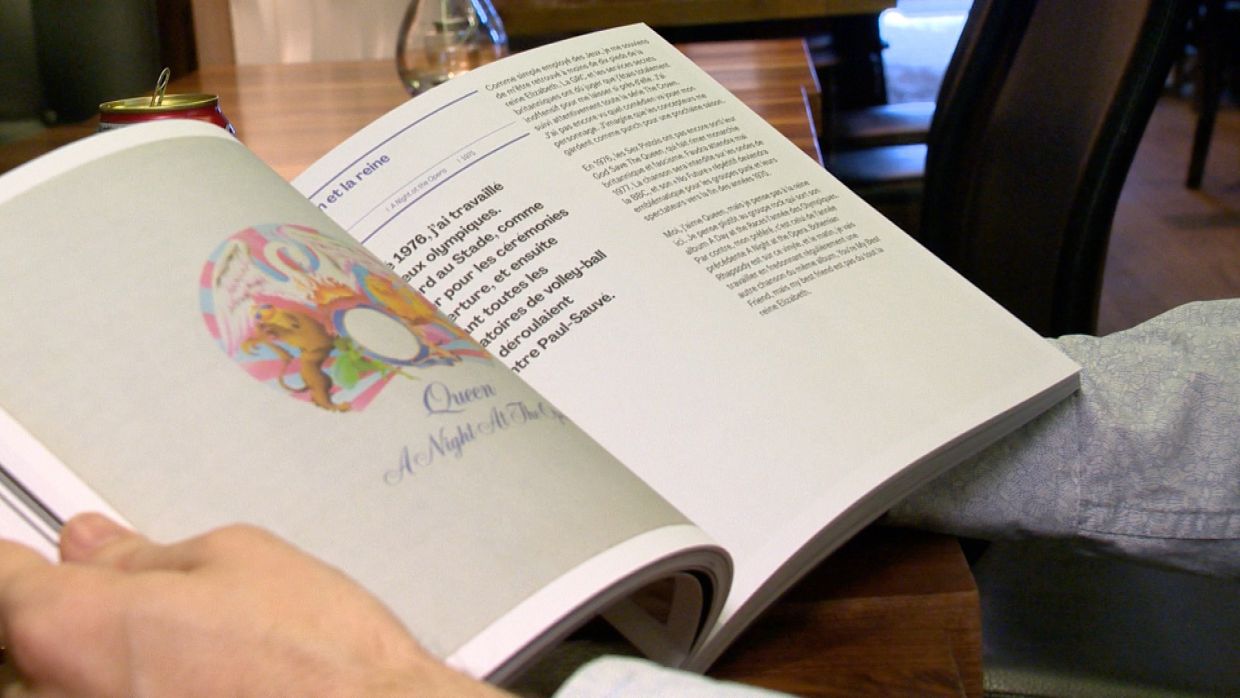 Queen
A Night At The Op
n et la reine
A Night at the Opera
1975
é 1976, j'ai travaillé
eux olympiques.
rd au Stade, comme
r pour les cérémonies
erture, et ensuite
nt toutes les
atoires de volley-ball
déroulaient
ntre Paul-Sauvé.
Comme simple employé des Jeux, je me souviens
de m'être retrouvé à moins de dix pieds de la
reine Elizabeth. La GRC et les services secrets
britanniques ont dû juger que j'étais totalement
inoffensif pour me laisser si près d'elle. J'ai
suivi attentivement toute la série The Crown.
J'ai pas encore vu quel comédien va jouer mon
personnage. J'imagine que les concepteurs me
gardent comme punch pour une prochaine saison.
En 1976, les Sex Pistols ont pas encore sorti leur
God Save The Queen, qui fait rimer monarchie
britannique et fascisme. Faudra attendre mai
1977. La chanson sera interdite sur les ondes de
la BBC, et son « No Future » répétitif deviendra
emblématique pour les groupes punk et leurs
spectateurs vers la fin des années 1970.
Moi, j'aime Queen, mais je pense pas à la reine
ici. Je pense plutôt au groupe rock qui sort son
album A Day at the Races l'année des Olympiques.
Par contre, mon préféré, c'est celui de l'année
précédente A Night at the Opera. Bohemian
Rhapsody est sur ce vinyle, et le matin, je vais
travailler en fredonnant régulièrement une
autre chanson du même album, You're My Best
Friend, mais my best friend est pas du tout la
reine Elizabeth.